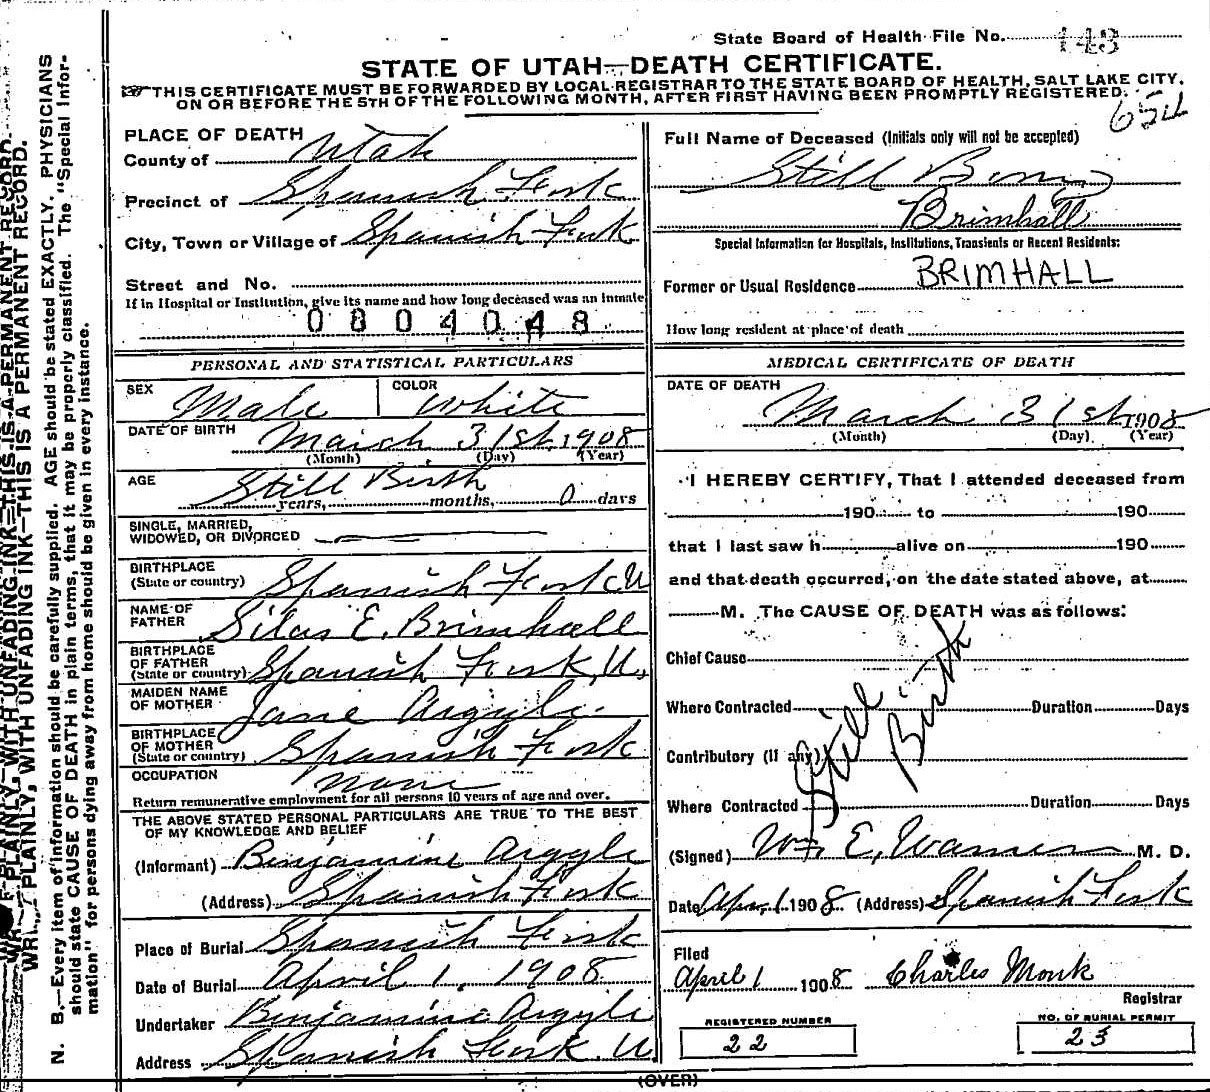 State Board of Health File No. 143
STATE OF UTAH—DEATH CERTIFICATE.
THIS CERTIFICATE MUST BE FORWARDED BY LOCAL REGISTRAR TO THE STATE BOARD OF HEALTH, SALT LAKE CITY,
ON OR BEFORE THE 5TH OF THE FOLLOWING MONTH, AFTER FIRST HAVING BEEN PROMPTLY REGISTERED.
PLACE OF DEATH
County of Utah
Precinct of Spanish Fork
City, Town or Village of Spanish Fork
Street and No.
If in Hospital or Institution, give its name and how long deceased was an inmate
0804048
PERSONAL AND STATISTICAL PARTICULARS
SEX Male COLOR White
DATE OF BIRTH March 31st 1908
(Month) (Day) (Year)
AGE Still Birth
years, months, 0 days
SINGLE, MARRIED,
WIDOWED, OR DIVORCED
BIRTHPLACE
(State or country) Spanish Fork U
NAME OF
FATHER Silas E. Brimhall
BIRTHPLACE
OF FATHER
(State or country) Spanish Fork, U.
MAIDEN NAME
OF MOTHER Jane Argyle.
BIRTHPLACE
OF MOTHER
(State or country) Spanish Fork
OCCUPATION None
Return remunerative employment for all persons 10 years of age and over.
THE ABOVE STATED PERSONAL PARTICULARS ARE TRUE TO THE BEST
OF MY KNOWLEDGE AND BELIEF
(Informant) Benjamine Argyle
(Address) Spanish Fork
Place of Burial Spanish Fork
Date of Burial April 1, 1908
Undertaker Benjamine Argyle
Address Spanish Fork. U
Full Name of Deceased (Initials only will not be accepted)
Still Born
Brimhall
Special Information for Hospitals, Institutions, Transients or Recent Residents:
BRIMHALL
Former or Usual Residence
How long resident at place of death
MEDICAL CERTIFICATE OF DEATH
DATE OF DEATH
March 31st 1908
(Month) (Day) (Year)
I HEREBY CERTIFY, That I attended deceased from
190 to 190
that I last saw h alive on 190
and that death occurred, on the date stated above, at
M. The CAUSE OF DEATH was as follows:
Chief Cause
Still Birth
Where Contracted Duration Days
Contributory (If any)
Where Contracted Duration Days
(Signed) Wm. E. Warner M. D.
Date Apr. 1 1908 (Address) Spanish Fork
Filed
April 1 1908 Charles Monk
Registrar
REGISTERED NUMBER
22
NO. OF BURIAL PERMIT
23
(OVER)
WRITE PLAINLY, WITH UNFADING INK—THIS IS A PERMANENT RECORD.
N. B.—Every item of information should be carefully supplied. AGE should be stated EXACTLY. PHYSICIANS
should state CAUSE OF DEATH in plain terms, that it may be properly classified. The "Special Infor-
mation" for persons dying away from home should be given in every instance.